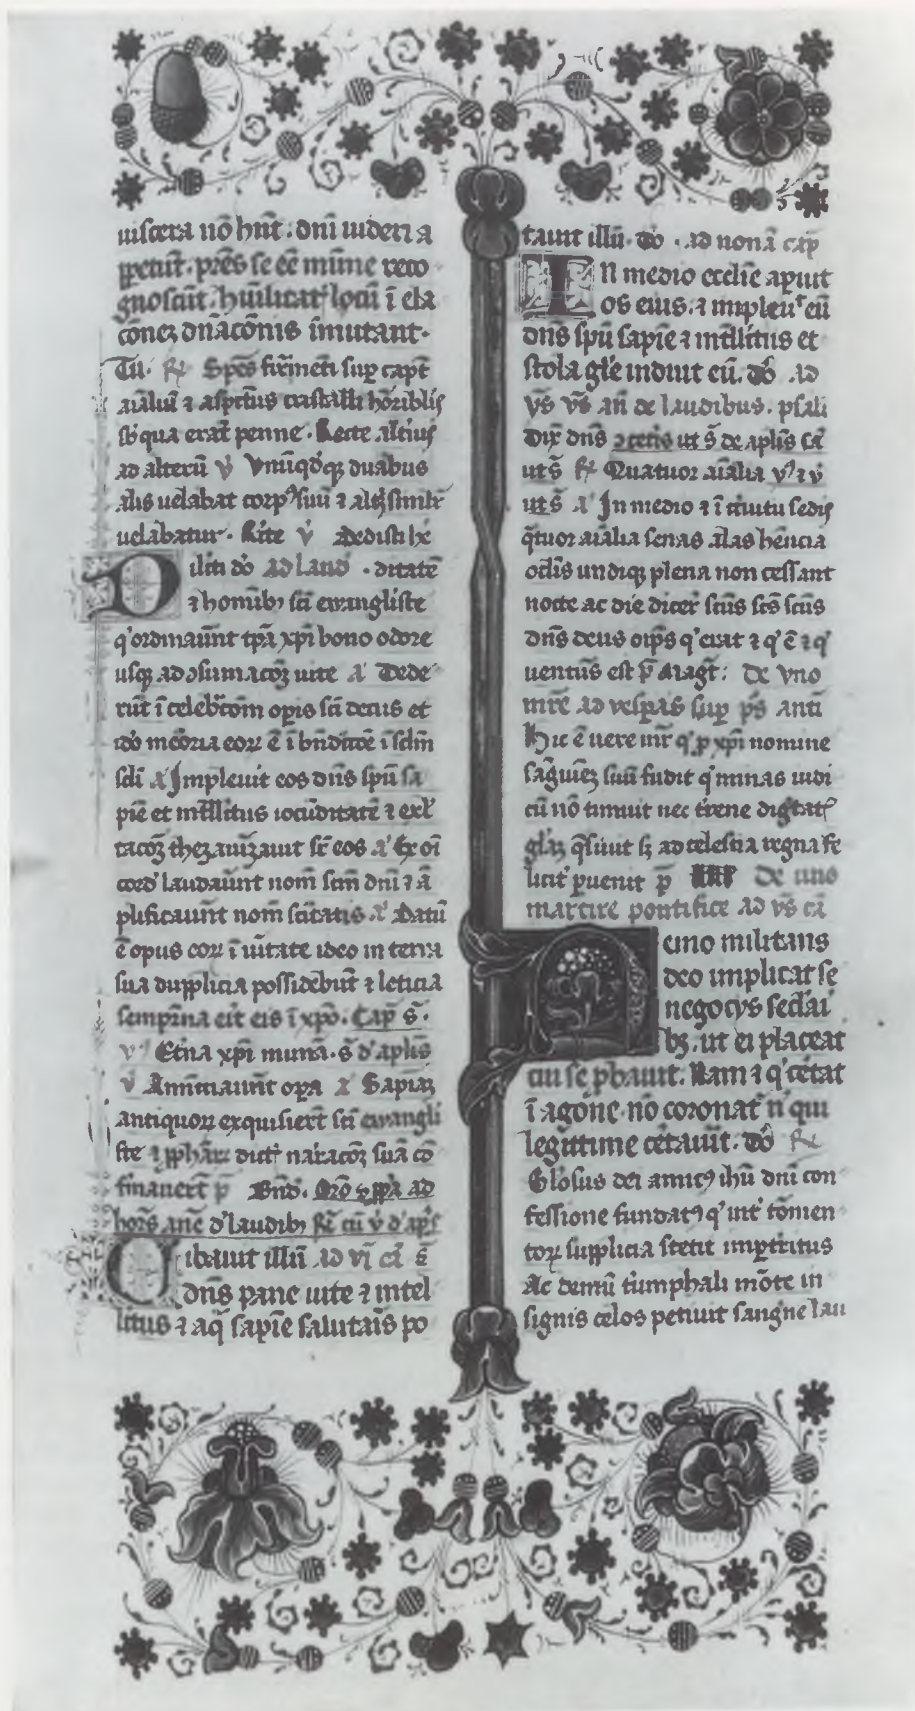 uiscera nō hn̄t. dn̄i uideri a
ppetūt. p̄res se eē mūne reco
gnoscūt. hūilitat̄ locū ī ela
conez dn̄acōnis īmutant.
Tu. R̸ Spēs firmēti sup̱ cap̄t
aīaliū ⁊ aspēus cristalli hōriblis
qua erāt penne. Recte alt̄ius
ad alterū v̄ Vnūq̄dq̨ duabus
alis uelabat corpꝰ suū ⁊ alt̄ similit̄
uelabatur. Rite v̄ Dedisti he
Diliti do Ad laud . ditatē
⁊ homībꝫ sc̄i ewangliste
q' ordinaūnt tp̄a xp̄i bono odore
usq̨ ad ꝯsumacōꝫ uite a' Dede
rūt ī celebrcōm op̱is sc̄i decus et
ido memoria eoꝝ ē ī bn̄dictōe ī
sc̄li a' Impleuit eos dn̄s sp̄u sa
pīe et intllītus iocūditatē ⁊ exl̄
tacōꝫ thezauzauit sr̄ eos a' Ex oī
cord' laudaūnt nom̄ sc̄m dn̄i ⁊ ā
plificaūnt nom̄ sc̄itatis a' Datū
ē opus eoꝝ ī ūitate ideo in terra
sua dupplicia possidebūt ⁊ leticia
semp̱īna eīt eis ī xp̄o. Cap̄ s̄.
v̄ Etīna xp̄i munā. s̄ d' aplīs
v̄ Annūciauīnt op̱a a' Sapīaꝫ
antiquoꝝ exquisierūt sc̄i ewangli
ste ⁊ pphāꝝ dict̄ naracōꝫ suā cō
finauerūt p̄ Bn̄d. Orō ⁊ ppa ad
horās an̄e d' laudibꝫ Rī cū v̄ d' ap̄s
Cibauit illū ad vj cā s̄
dn̄s pane uite ⁊ intel
litus ⁊ aq̄ sapīe salutaīs po
tauit illū. do . ad nonā cap̄
In medio ecclīe apuit
os eius. ⁊ impleuꝰt eū
dn̄s sp̄u sapīe ⁊ intllītus et
stola gl̄e induit eū. do . ad
v̄s v̄s an̄ de laudibus. psali
Dix̄ dn̄s ut s̄ de aplīs
ut s̄ R̸ Quatuor aīalia v̄ ⁊ v̄
ut s̄ a' In medio ⁊ ī cīuitu sedis
q̄tuor aīalia senas alas hēncia
oclīs undiq̨ plena non cessant
nocte ac die dicēt sc̄us sc̄s sc̄us
dn̄s deus oīps q' erat ⁊ q' ē ⁊ q'
uentūs est p̄ Magt̄: De vno
mr̄e ad vesp̱as sup̱ p̄s anti
Hic ē uere mīr q' p xp̄i nomine
sāguīeꝫ suū fudit q' minas iudi
cū nō timuit nec t̄rene digītat̄
gl̄aꝫ q̄siuit sꝫ ad celestia regna fe
licit̄ puenit p̄ De uno
martire pontifice ad v̄s cā
Nemo militans
deo implicat se
negocys seclāi
bꝫ. ut ei placeat
cui se pbauit. Nam ⁊ q' cētat
ī agone. nō coronat̄ n̄ qui
legittime cētauit. do R̸
Gl̄osus dei amicꝰ ihū dn̄i con
fessione fundatꝰ q' int̄ tōmen
toꝝ supplicia stetit imp̱titus
Ac demū tiumphali mōte in
signis celos petiuit sangne lau